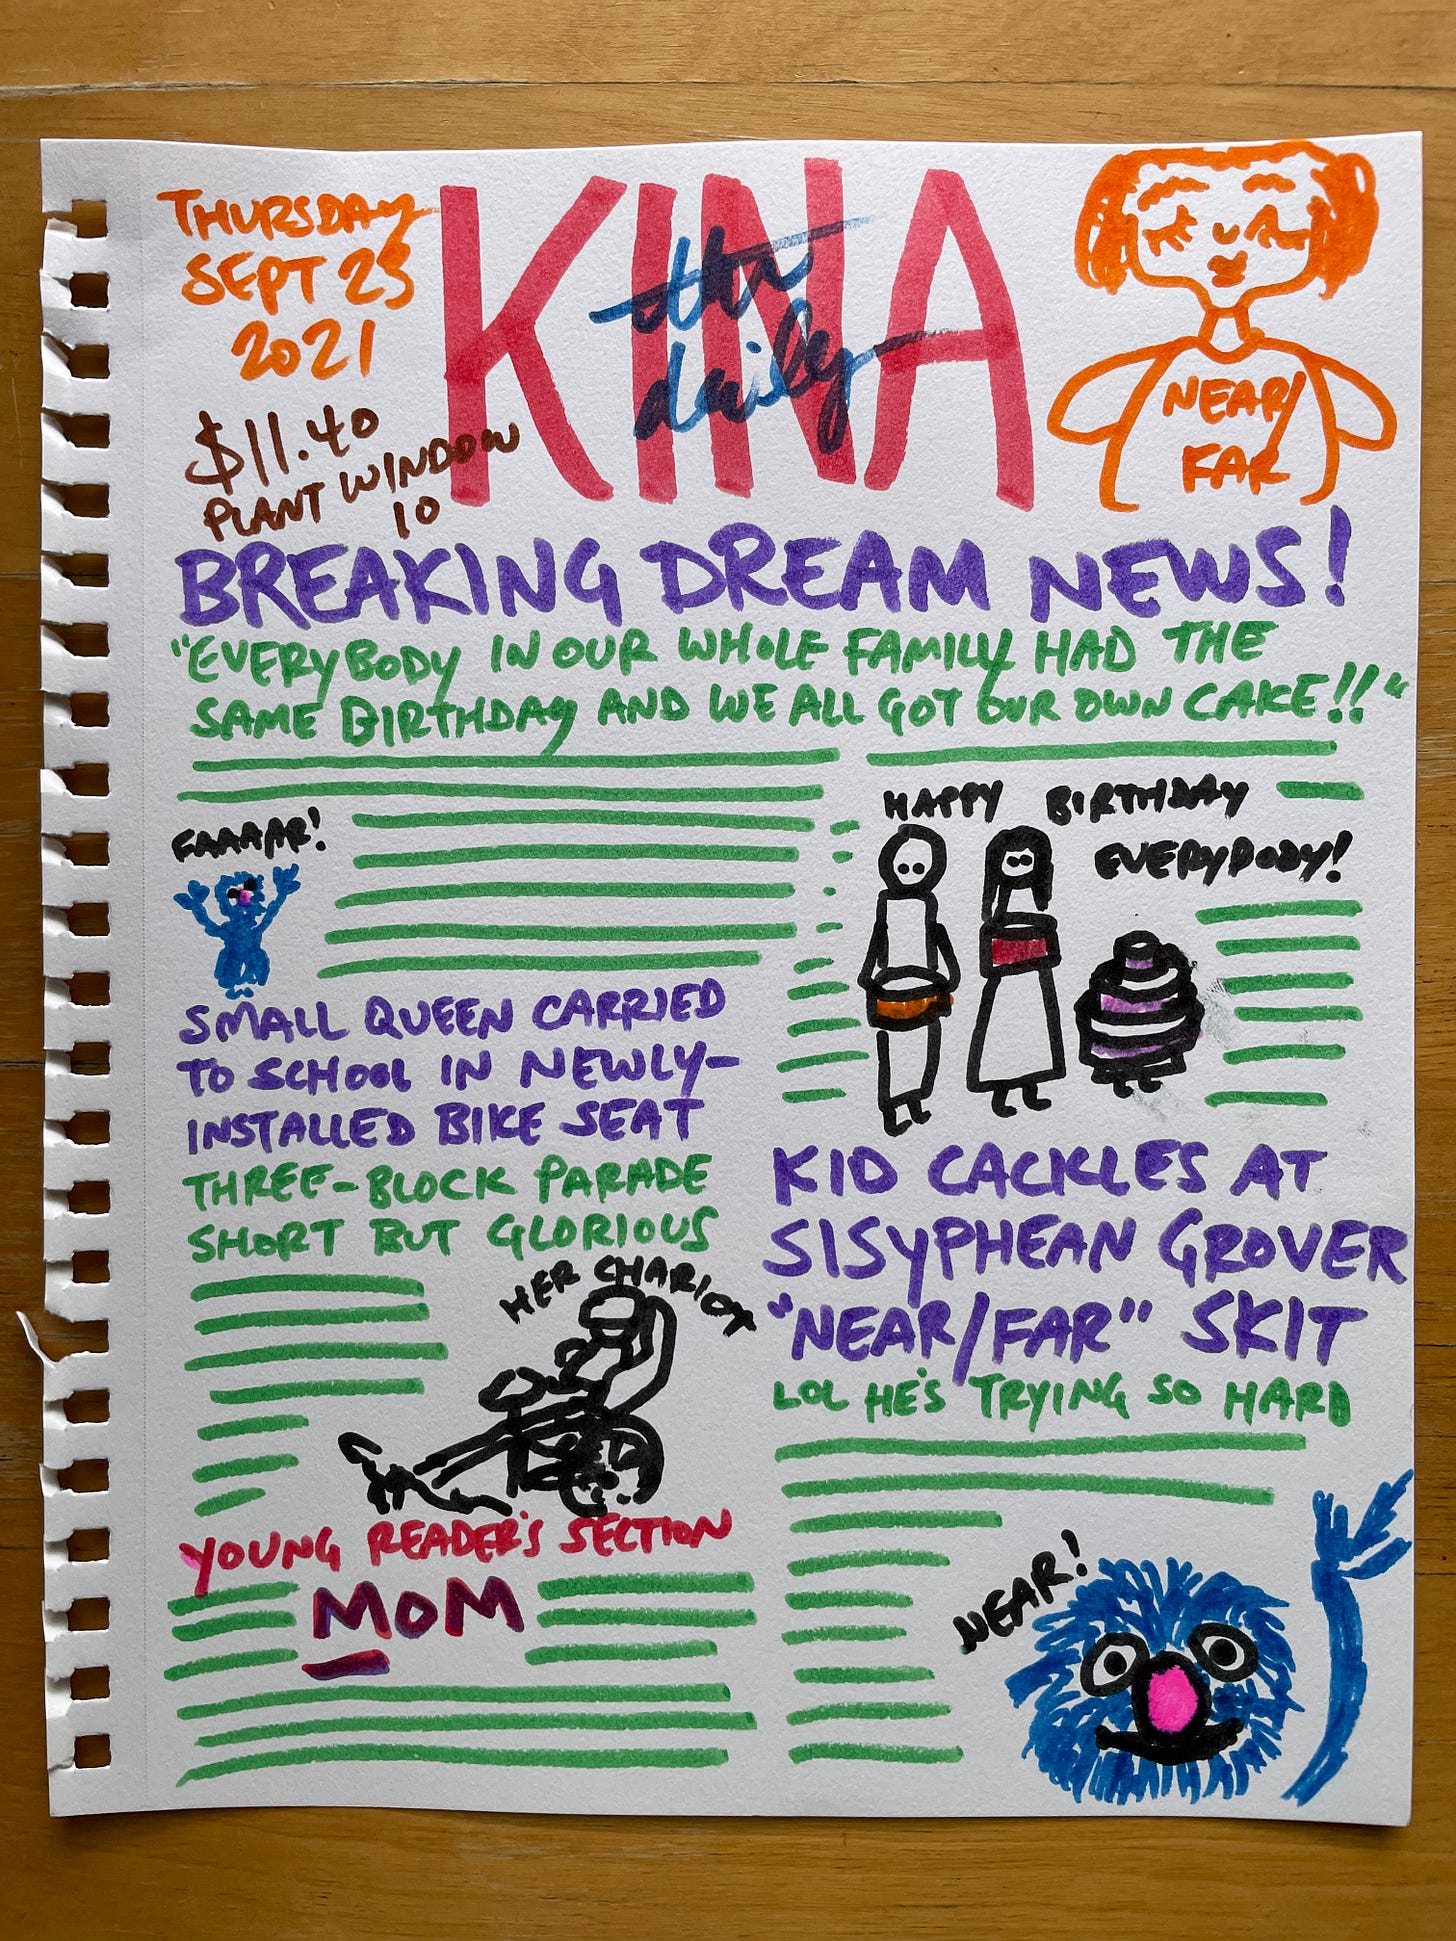 THURSDAY
SEPT 23
2021
$11.40
PLANT WINDOW
10
the
daily
KINA
NEAR/
FAR
BREAKING DREAM NEWS!
"EVERYBODY IN OUR WHOLE FAMILY HAD THE
SAME BIRTHDAY AND WE ALL GOT OUR OWN CAKE!!"
FAAAAR!
HAPPY BIRTHDAY
EVERYBODY!
SMALL QUEEN CARRIED
TO SCHOOL IN NEWLY-
INSTALLED BIKE SEAT
THREE-BLOCK PARADE
SHORT BUT GLORIOUS
HER CHARIOT
YOUNG READER'S SECTION
MOM
KID CACKLES AT
SISYPHEAN GROVER
"NEAR/FAR" SKIT
LOL HE'S TRYING SO HARD
NEAR!